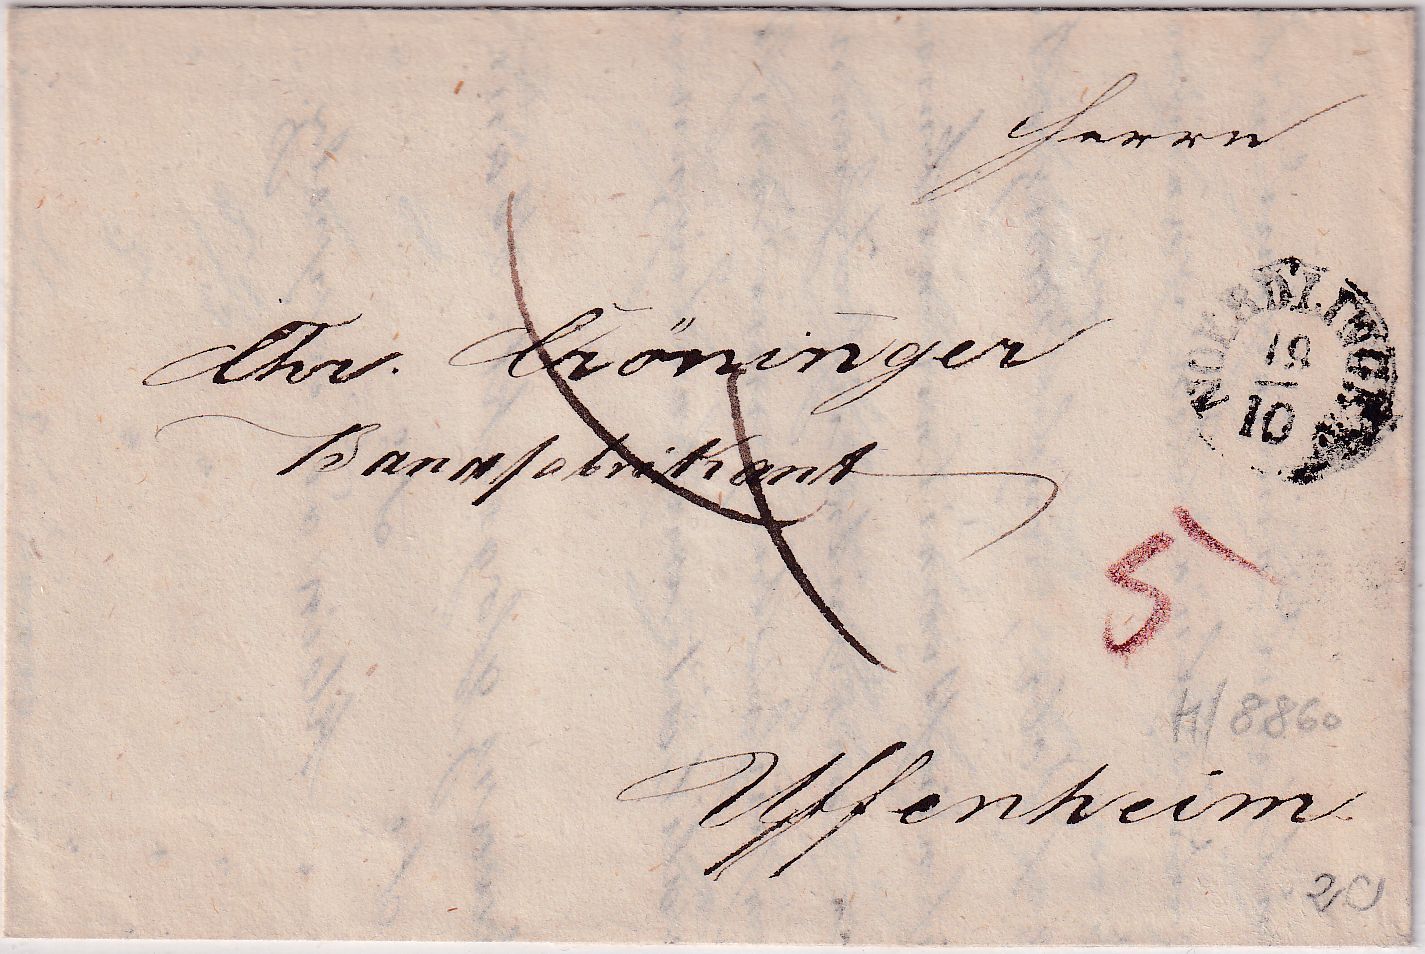 Herrn
Chr. Cröninger
Bandfabrikant
NOERDLINGEN
19
10
5
H/8860
Uffenheim
20